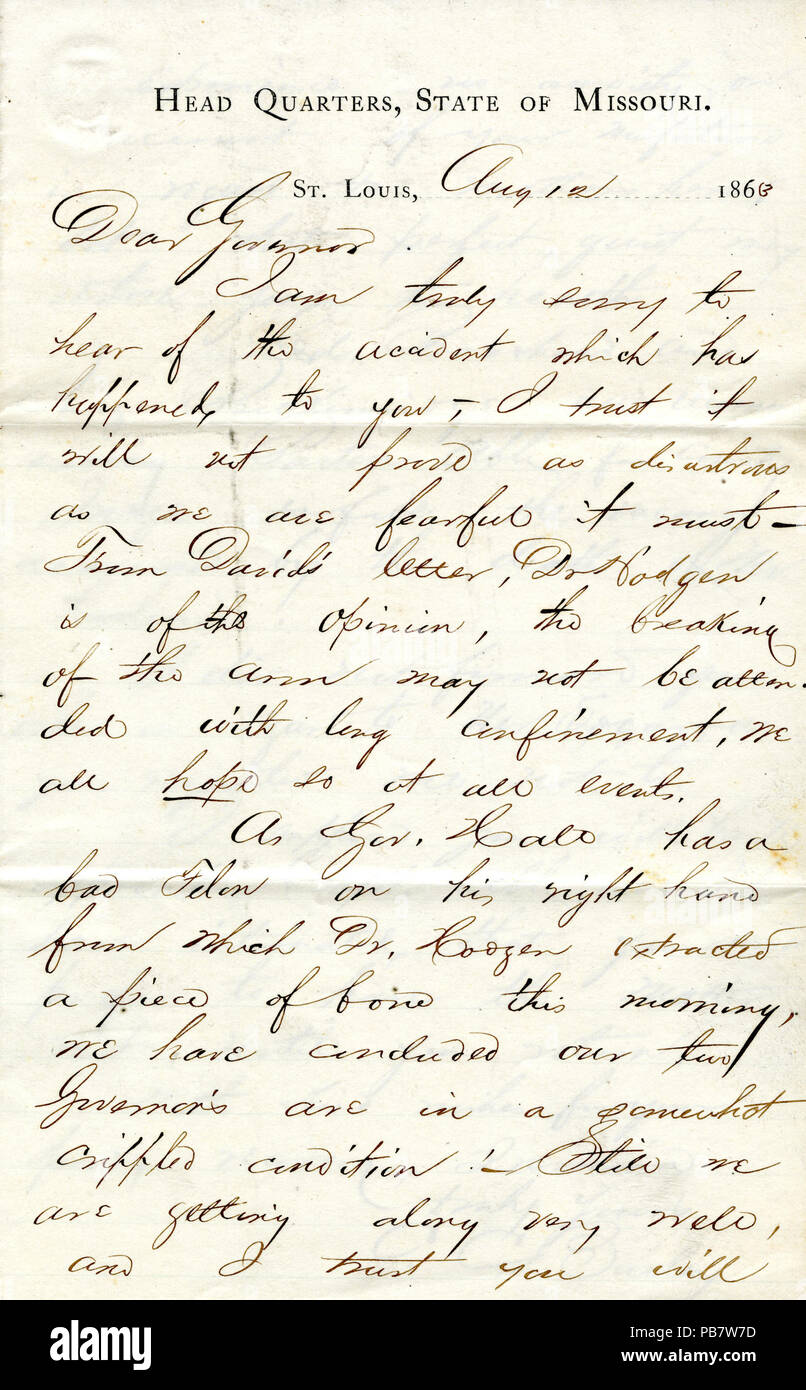 HEAD QUARTERS, STATE OF MISSOURI.
ST. LOUIS, Aug 12 1863
Dear Governor.
I am truly sorry to
hear of the accident which has
happened, to you, – I trust it
will not prove as disastrous
as we are fearful it must –
From David's letter, Dr Hodgen
is of the opinion, the breaking
of the arm may not be atten-
ded with long confinement, we
all hope so at all events.
As Gov. Hall has a
bad Felon on his right hand
from which Dr. Hodgen extracted
a piece of bone this morning,
we have concluded our two
Governor's are in a somewhat
crippled condition! – Still we
are getting along very well,
and I trust you will
alamy
Image ID: PB7W7D
www.alamy.com